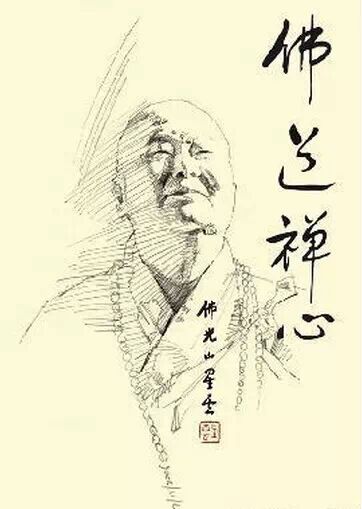 佛道禅心
佛光山星雲